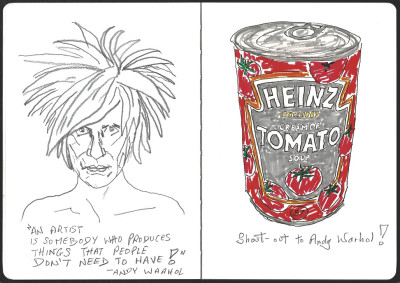 "AN ARTIST
IS SOMEBODY WHO PRODUCES
THINGS THAT PEOPLE
DON'T NEED TO HAVE!"
-ANDY WARHOL
HEINZ
CREAM OF
TOMATO
SOUP
Shout-out to Andy Warhol!